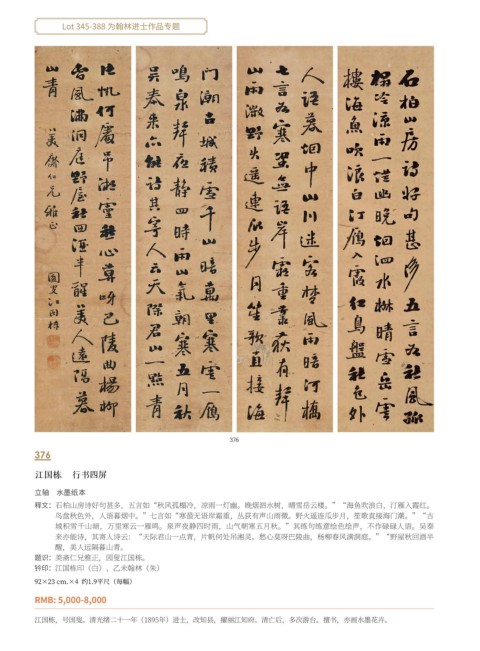 Lot 345-388 为翰林进士作品专题
石柏山房詩好句甚多五言如秋風孤
榻冷涼雨一燈幽晚烟泗水樹晴雪岳雲
樓海魚吹浪白汀雁入霞紅鳥盤秋色外
人語暮烟中山川迷客夢風雨暗河橋
七言如寒蛩無語岸霜重叢荻有聲
山雨微野火遥連瓜步月笙歌直接海
門潮古城積雪千山暗萬里寒雲一雁
鳴泉聲夜静四時雨山氣朝寒五月秋
吴泰来亦能詩其寄人云天際君山一點青
片帆何處吊湘靈愁心莫巴陵曲楊柳
春風滿洞庭野屋秋回酒半醒美人遠隔暮
山青 美斋仁兄雅正 國叟江國棟
376
376
江国栋 行书四屏
立轴 水墨纸本
释文：石柏山房诗好句甚多，五言如“秋风孤榻冷，凉雨一灯幽。晚烟泗水树，晴雪岳云楼。” “海鱼吹浪白，汀雁入霞红。
鸟盘秋色外，人语暮烟中。”七言如“寒蛩无语岸霜重，丛荻有声山雨微。野火遥连瓜步月，笙歌直接海门潮。” “古
城积雪千山暗，万里寒云一雁鸣。泉声夜静四时雨，山气朝寒五月秋。”其炼句炼意绘色绘声，不作碌碌人语。吴泰
来亦能诗，其寄人诗云：“天际君山一点青，片帆何处吊湘灵。愁心莫将巴陵曲，杨柳春风满洞庭。” “野屋秋回酒半
醒，美人远隔暮山青。”
题识：美斋仁兄雅正，国叟江国栋。
钤印：江国栋印（白）、乙未翰林（朱）
92×23 cm.×4 约1.9平尺（每幅）
RMB: 5,000-8,000
江国栋，号国叟。清光绪二十一年（1895年）进士，改知县，擢丽江知府。清亡后，多次游台。擅书，亦画水墨花卉。